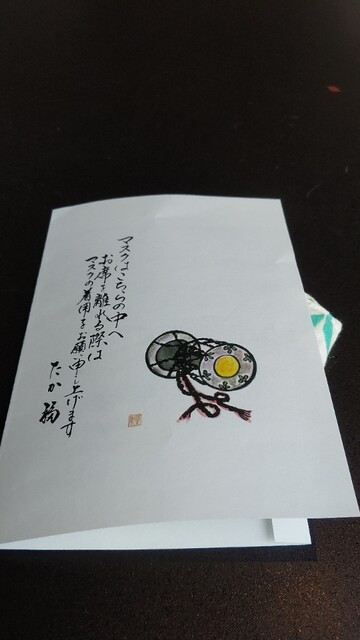 マスクはこちらの中へ
お席を離れる際は
マスクの着用をお願い申し上げます
たか福